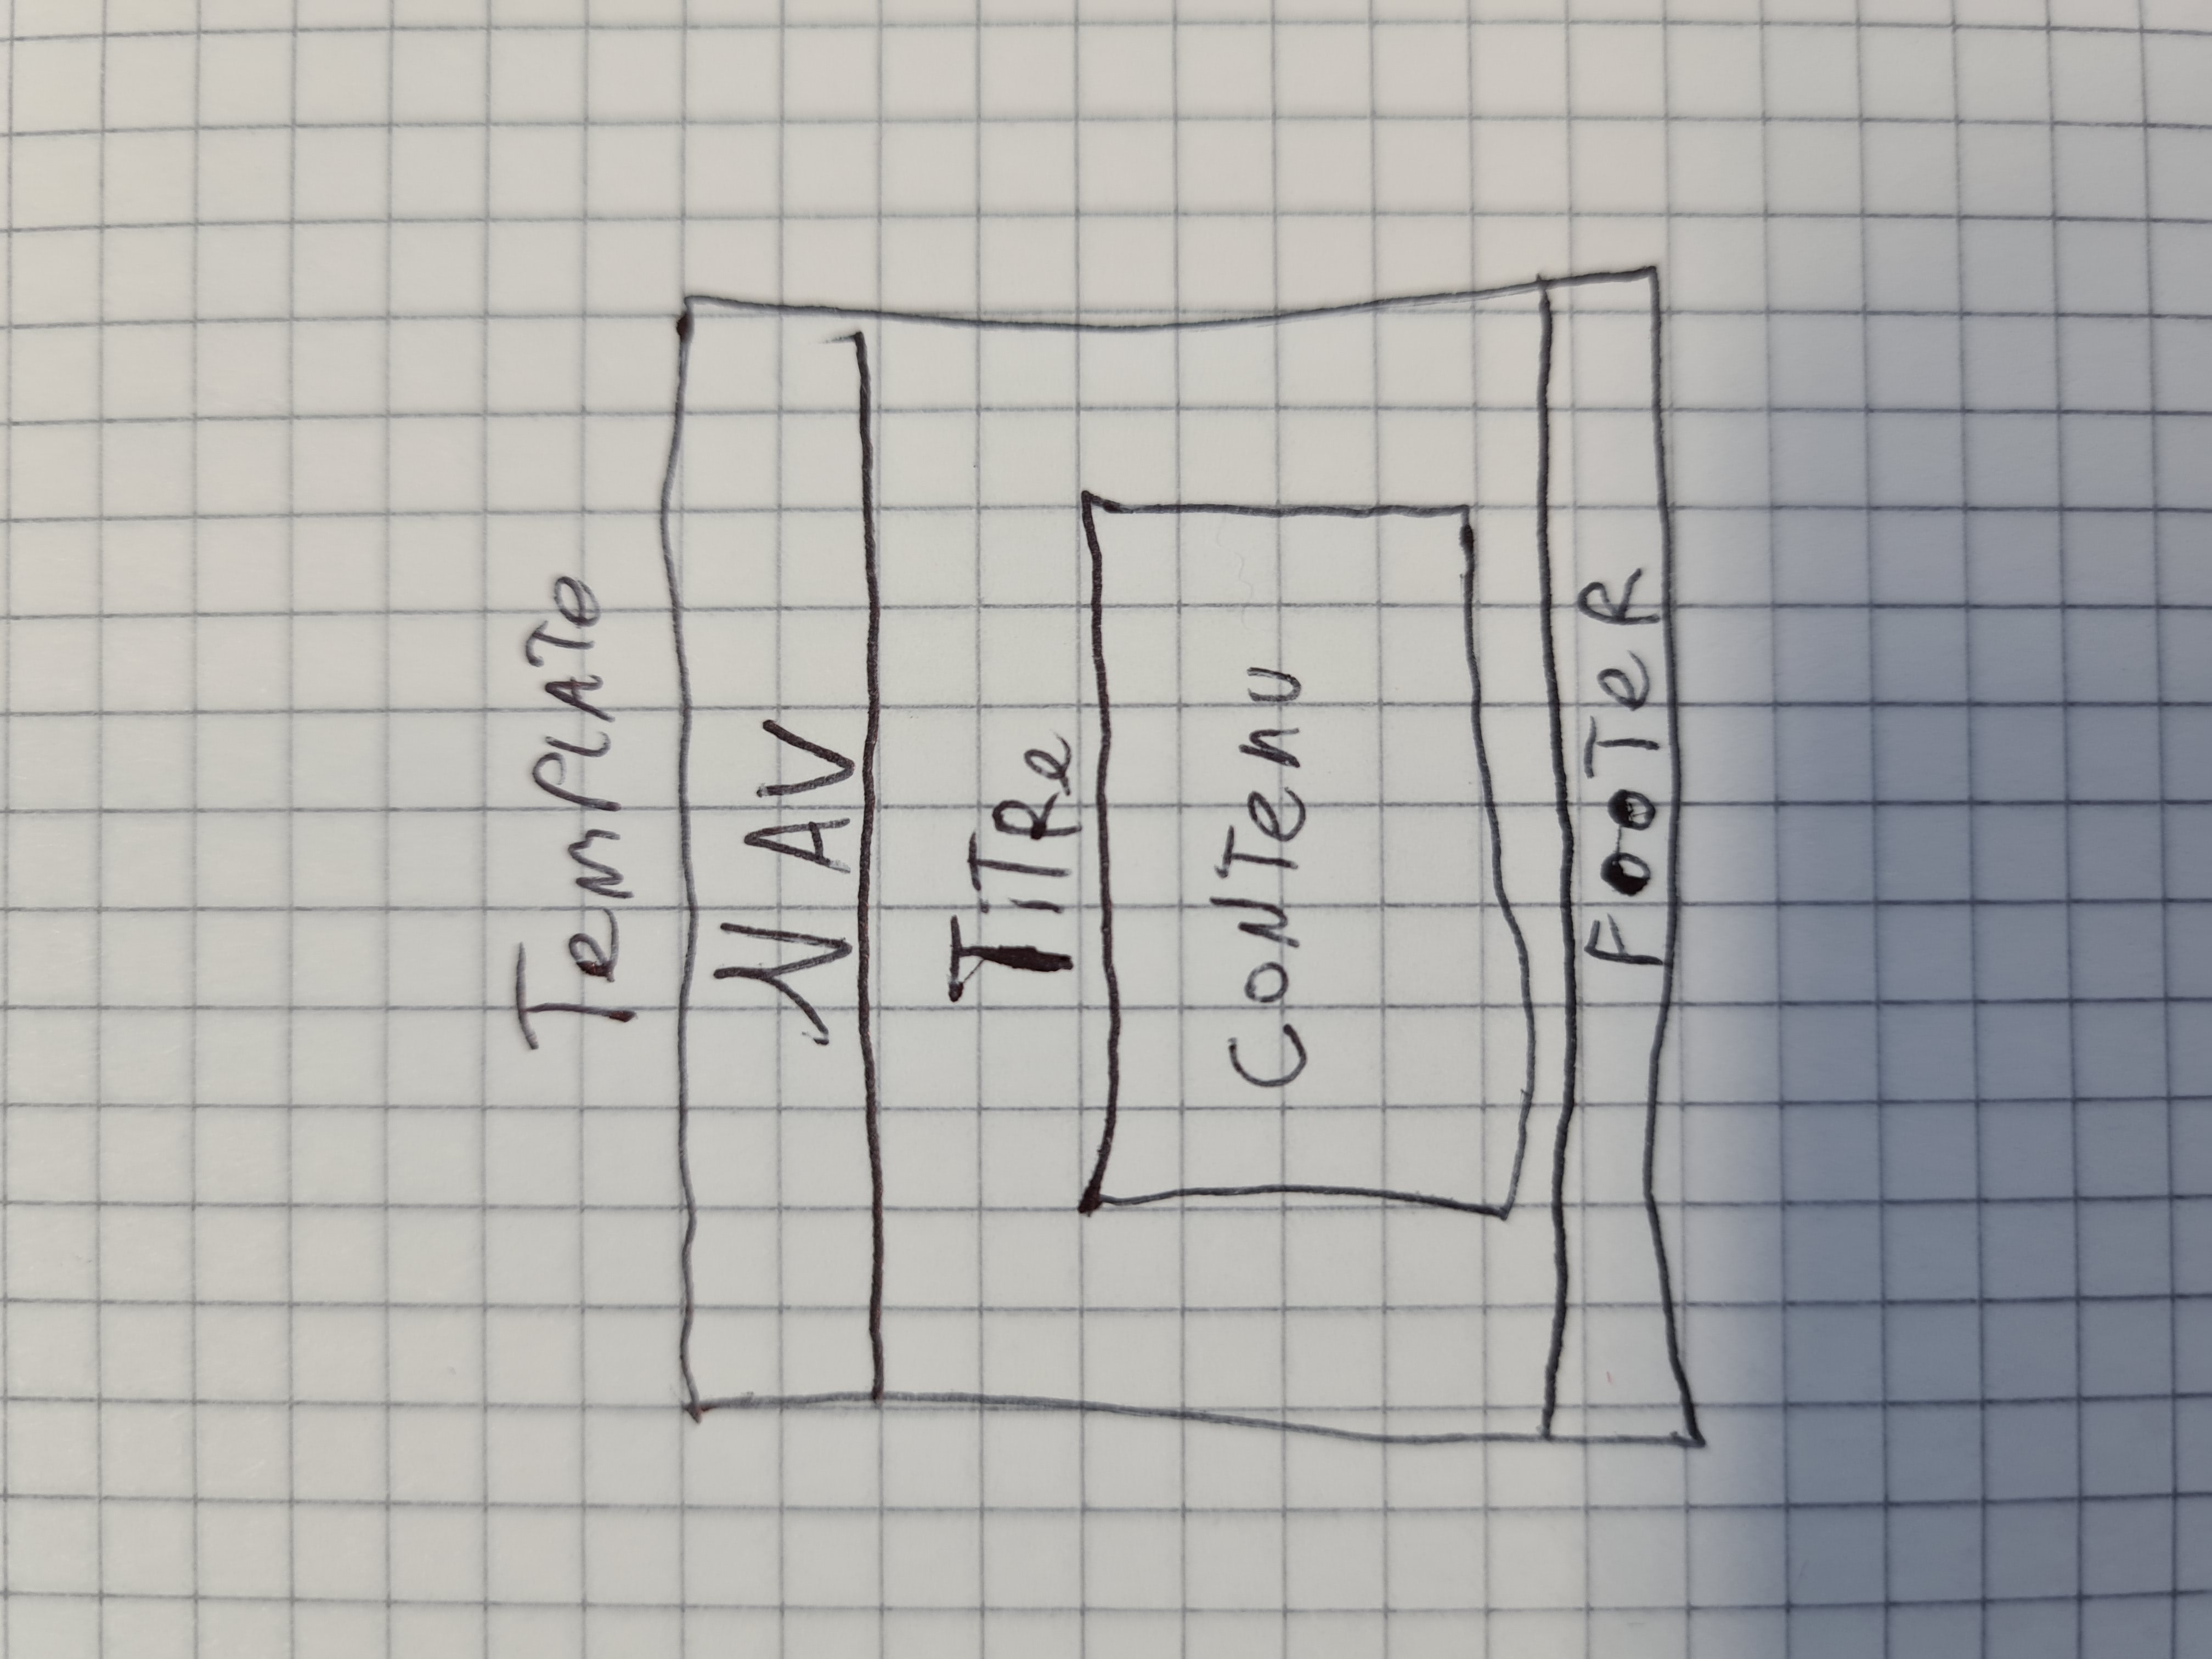 TemPLATe
NAV
TiTRe
CoNTenu
FooTeR